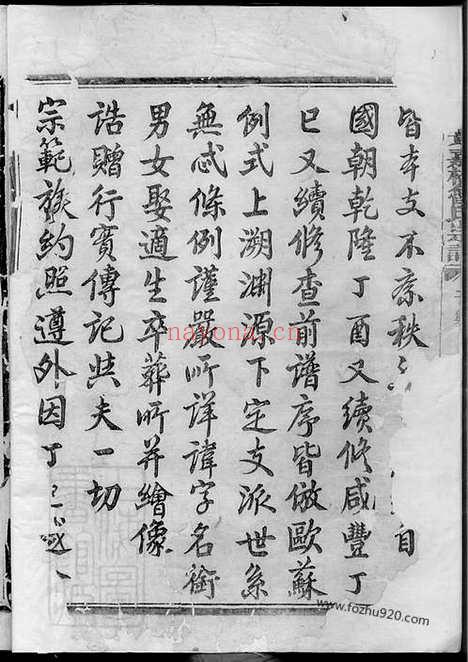 皆本支不紊秩
自
國朝乾隆丁酉又續修咸豐丁
巳又續修查前譜序皆倣歐蘇
例式上溯淵源下定支派世系
無忒條例謹嚴所詳諱字名銜
男女娶適生卒葬所并繪像
誥贈行實傳記與夫一切
宗範族約照遵外因丁
nayona.cn
www.fozhu920.com